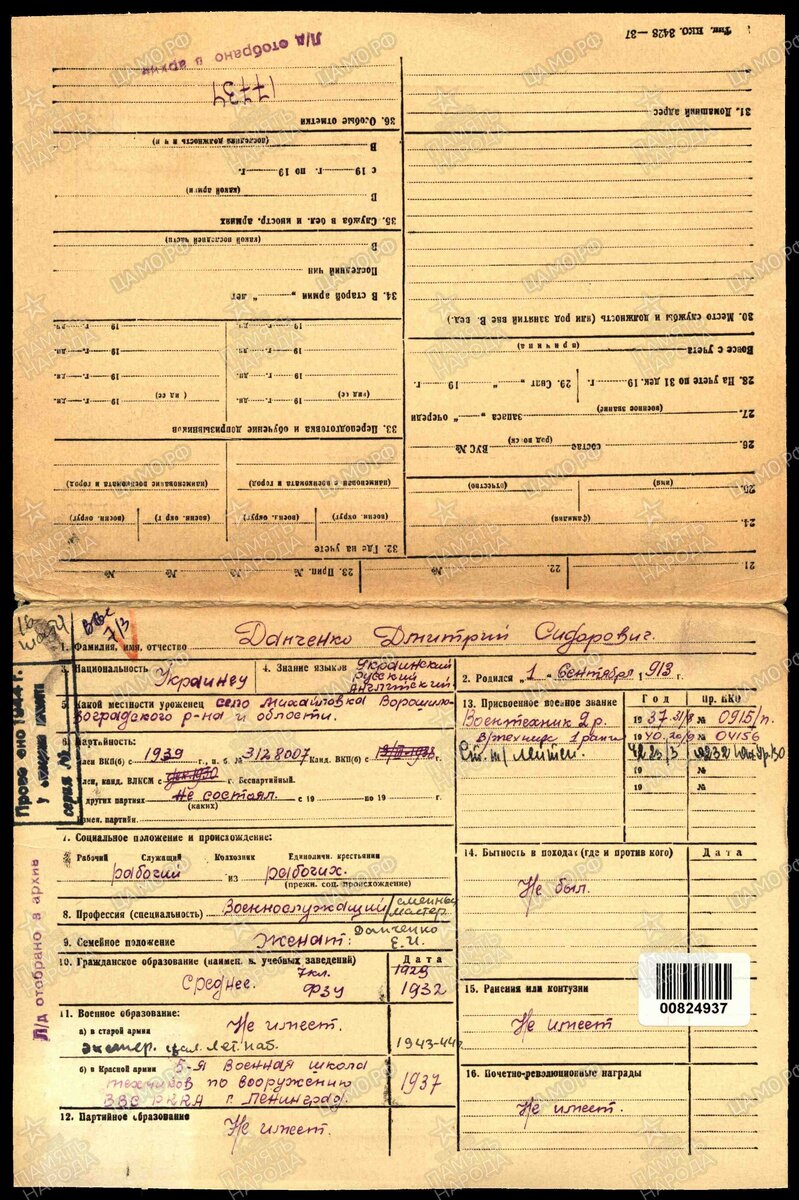 Тип. НКО. 3428—37
31. Домашний адрес
30. Место службы и должность (или род занятий вне В. вед.)
Вовсе с учета
(причина)
28. На учете по 31 дек. 19 г. 29. Снят „ “ 19 г.
27. запаса „ “ очереди
(военное звание)
26. состав ВУС №
(род войск)
25.
(имя) (отчество)
24.
(фамилия)
21. 22. № 23. Прип. № № №
Л/д отобрано в архив
17734
36. Особые отметки
(последняя должность и чин)
В
с 19 г. по 19 г.
(какой армии)
В
35. Служба в бел. и иностр. армиях
(какой последней части)
В
Последний чин
34. В старой армии „ “ лет
19 г. дн. 19 г. дн.
19 г. дн. 19 г. дн.
19 г. дн. 19 г. дн.
19 г. дн. 19 г. дн.
33. Переподготовка и обучение допризывников
(наименован. военкомата и город) (наименование военкомата и город)
(военн. округ) (военн. округ) (военн. округ) (военн. округ)
32. Где на учете
ВВС
7/3
1. Фамилия, имя, отчество Данченко Дмитрий Сидорович.
3. Национальность Украинец
4. Знание языков Украинский
русский
английский
2. Родился „1“ Сентября 1913 г.
5. Какой местности уроженец село Михайловка Ворошило-
воградского р-на и области.
6. Партийность:
Член ВКП(б) с 1939 г., п. б. № 3128007 Канд. ВКП(б) с г.
Член, канд. ВЛКСМ с Беспартийный.
В других партиях Не состоял. с 19 по 19 г.
(каких)
Измен. партийн.
7. Социальное положение и происхождение:
Рабочий Служащий Колхозник Единоличн. крестьянин
рабочий из рабочих.
(прежн. соц. происхождение)
8. Профессия (специальность) Военнослужащий/сменный мастер
9. Семейное положение Женат: Данченко Е.И.
10. Гражданское образование (наимен. в. учебных заведений) Дата
Среднее. 7кл. 1929
ФЗУ 1932
11. Военное образование:
а) в старой армии Не имеет.
1943-44г
б) в Красной армии 5-я Военная школа
техников по вооружению 1937
ВВС РККА г. Ленинград.
12. Партийное образование
Не имеет.
13. Присвоенное военное звание Год Пр. НКО
Воентехник 2 р. 1937. 31/8 № 0915/п.
В/техник 1 ранга 1940. 20/9 № 04156
Ст. т/лейтен. 42 25/3 №
19 №
19 №
14. Бытность в походах (где и против кого) Дата
Не был.
15. Ранения или контузии
Не имеет
16. Почетно-революционные награды
Не имеет.
Проверено 1944 г.
серия №
Л/д отобрано в архив
00824937
ПАМЯТЬ НАРОДА
ЦАМО.РФ